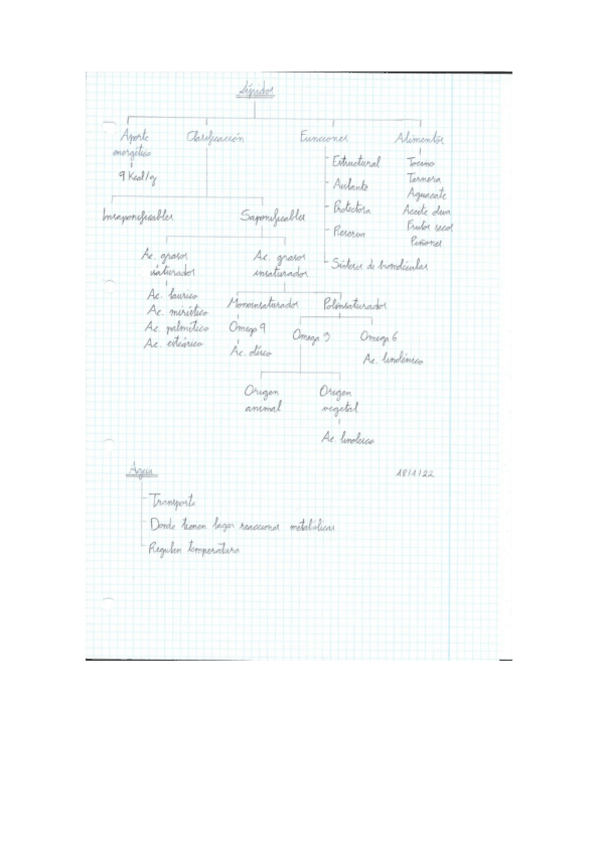 Lípidos
Aporte energético
Clasificación
Funciones
Alimentos
9 Kcal/g
Estructural
Aislante
Protectora
Reserva
Síntesis de biomoléculas
Tocino
Ternera
Aguacate
Aceite oliva
Frutos secos
Insaponificables
Saponificables
Ac. grasos saturados
Ac. grasos insaturados
Ac. laurico
Ac. mirístico
Ac. palmítico
Ac. esteárico
Monoinsaturados
Poliinsaturados
Omega 9
Omega 3
Omega 6
Ac. oleico
Ac. linolénico
Origen animal
Origen vegetal
Ac. linoleico
Agua
18/1/22
Transporte
Donde tienen lugar reacciones metabólicas
Regulan temperatura